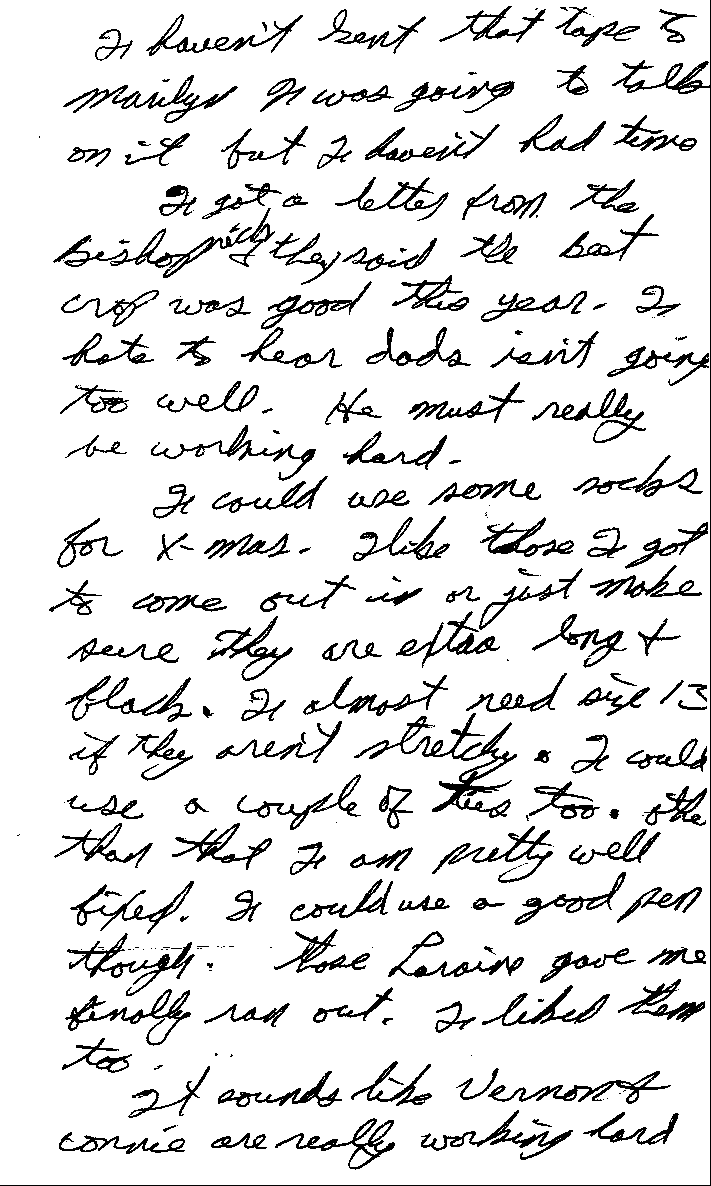 I haven't sent that tape to
Marilyn I was going to talk
on it but I haven't had time
I got a letter from the
Bishopricks & they said the beet
crop was good this year. I
hate to hear dads isn't going
too well. He must really
be working hard.
I could use some socks
for X-mas. I like those I got
to come out in or just make
sure they are extra long &
black. I almost need size 13
if they aren't stretchy. I could
use a couple of ties too. othe
than that I am pretty well
fixed. I could use a good pen
though. Those Loraine gave me
finally ran out. I liked them
too.
It sounds like Vernon &
Connie are really working hard